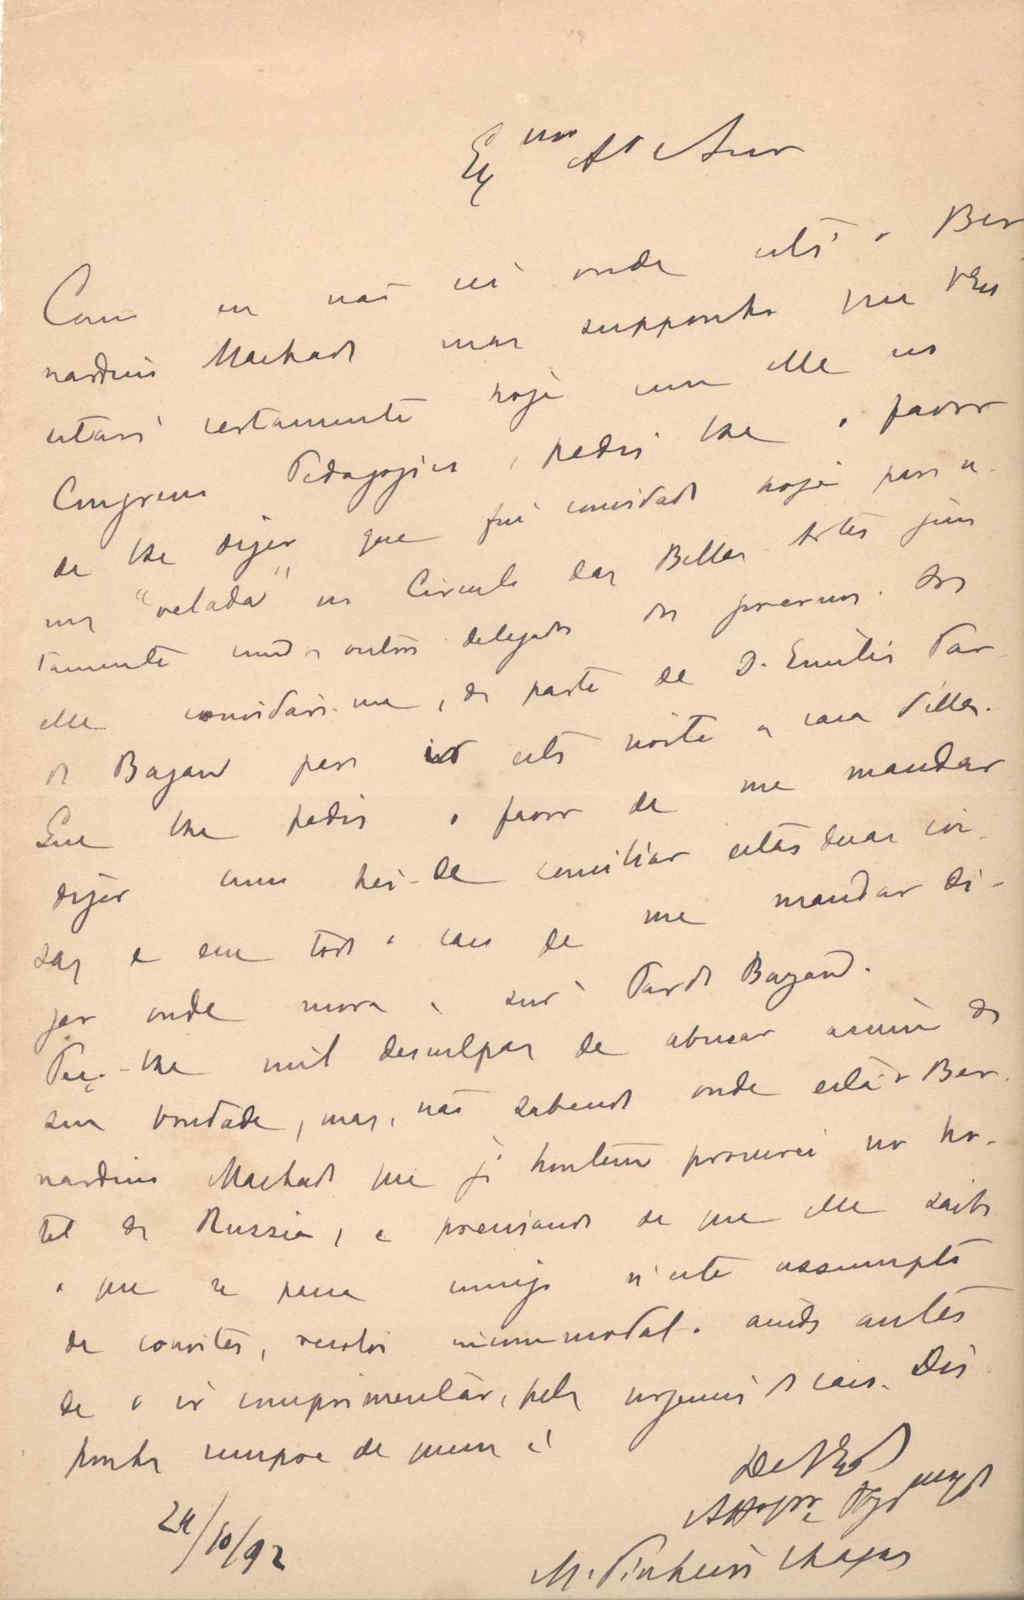 Ex mo Am.o e Snr
Como eu não sei onde está o Ber
nardino Machado mas supponho que V Ex
estará certamente hoje com elle no
Congresso Pedagogico, pedia-lhe o favor
de lhe dizer que fui convidado hoje para u-
ma "velada" no Circulo das Bellas Artes jun
tamente com os outros delegados do governo. Do
elle convidára-me, da parte de D. Emilia Par
do Bazan para ir esta noite a casa d'ella.
Que lhe pedia o favor de me mandar
dizer como hei-de conciliar estas duas coi-
sas e em todo o caso de me mandar di-
zer onde mora a snrª Pardo Bazan.
Peço-lhe mil desculpas de abusar assim da
sua bondade, mas, não sabendo onde está o Ber-
nardino Machado que já hontem procurei no ho-
tel da Russia, e precisando de que elle saiba
o que se passa comigo n'este assumpto
de convites, resolvi incommodal-o ainda antes
de o ir comprimentar, pela urgencia do caso. Dis
ponha sempre de quem é
De V Exª
M. Pinheiro Chagas
24/10/92